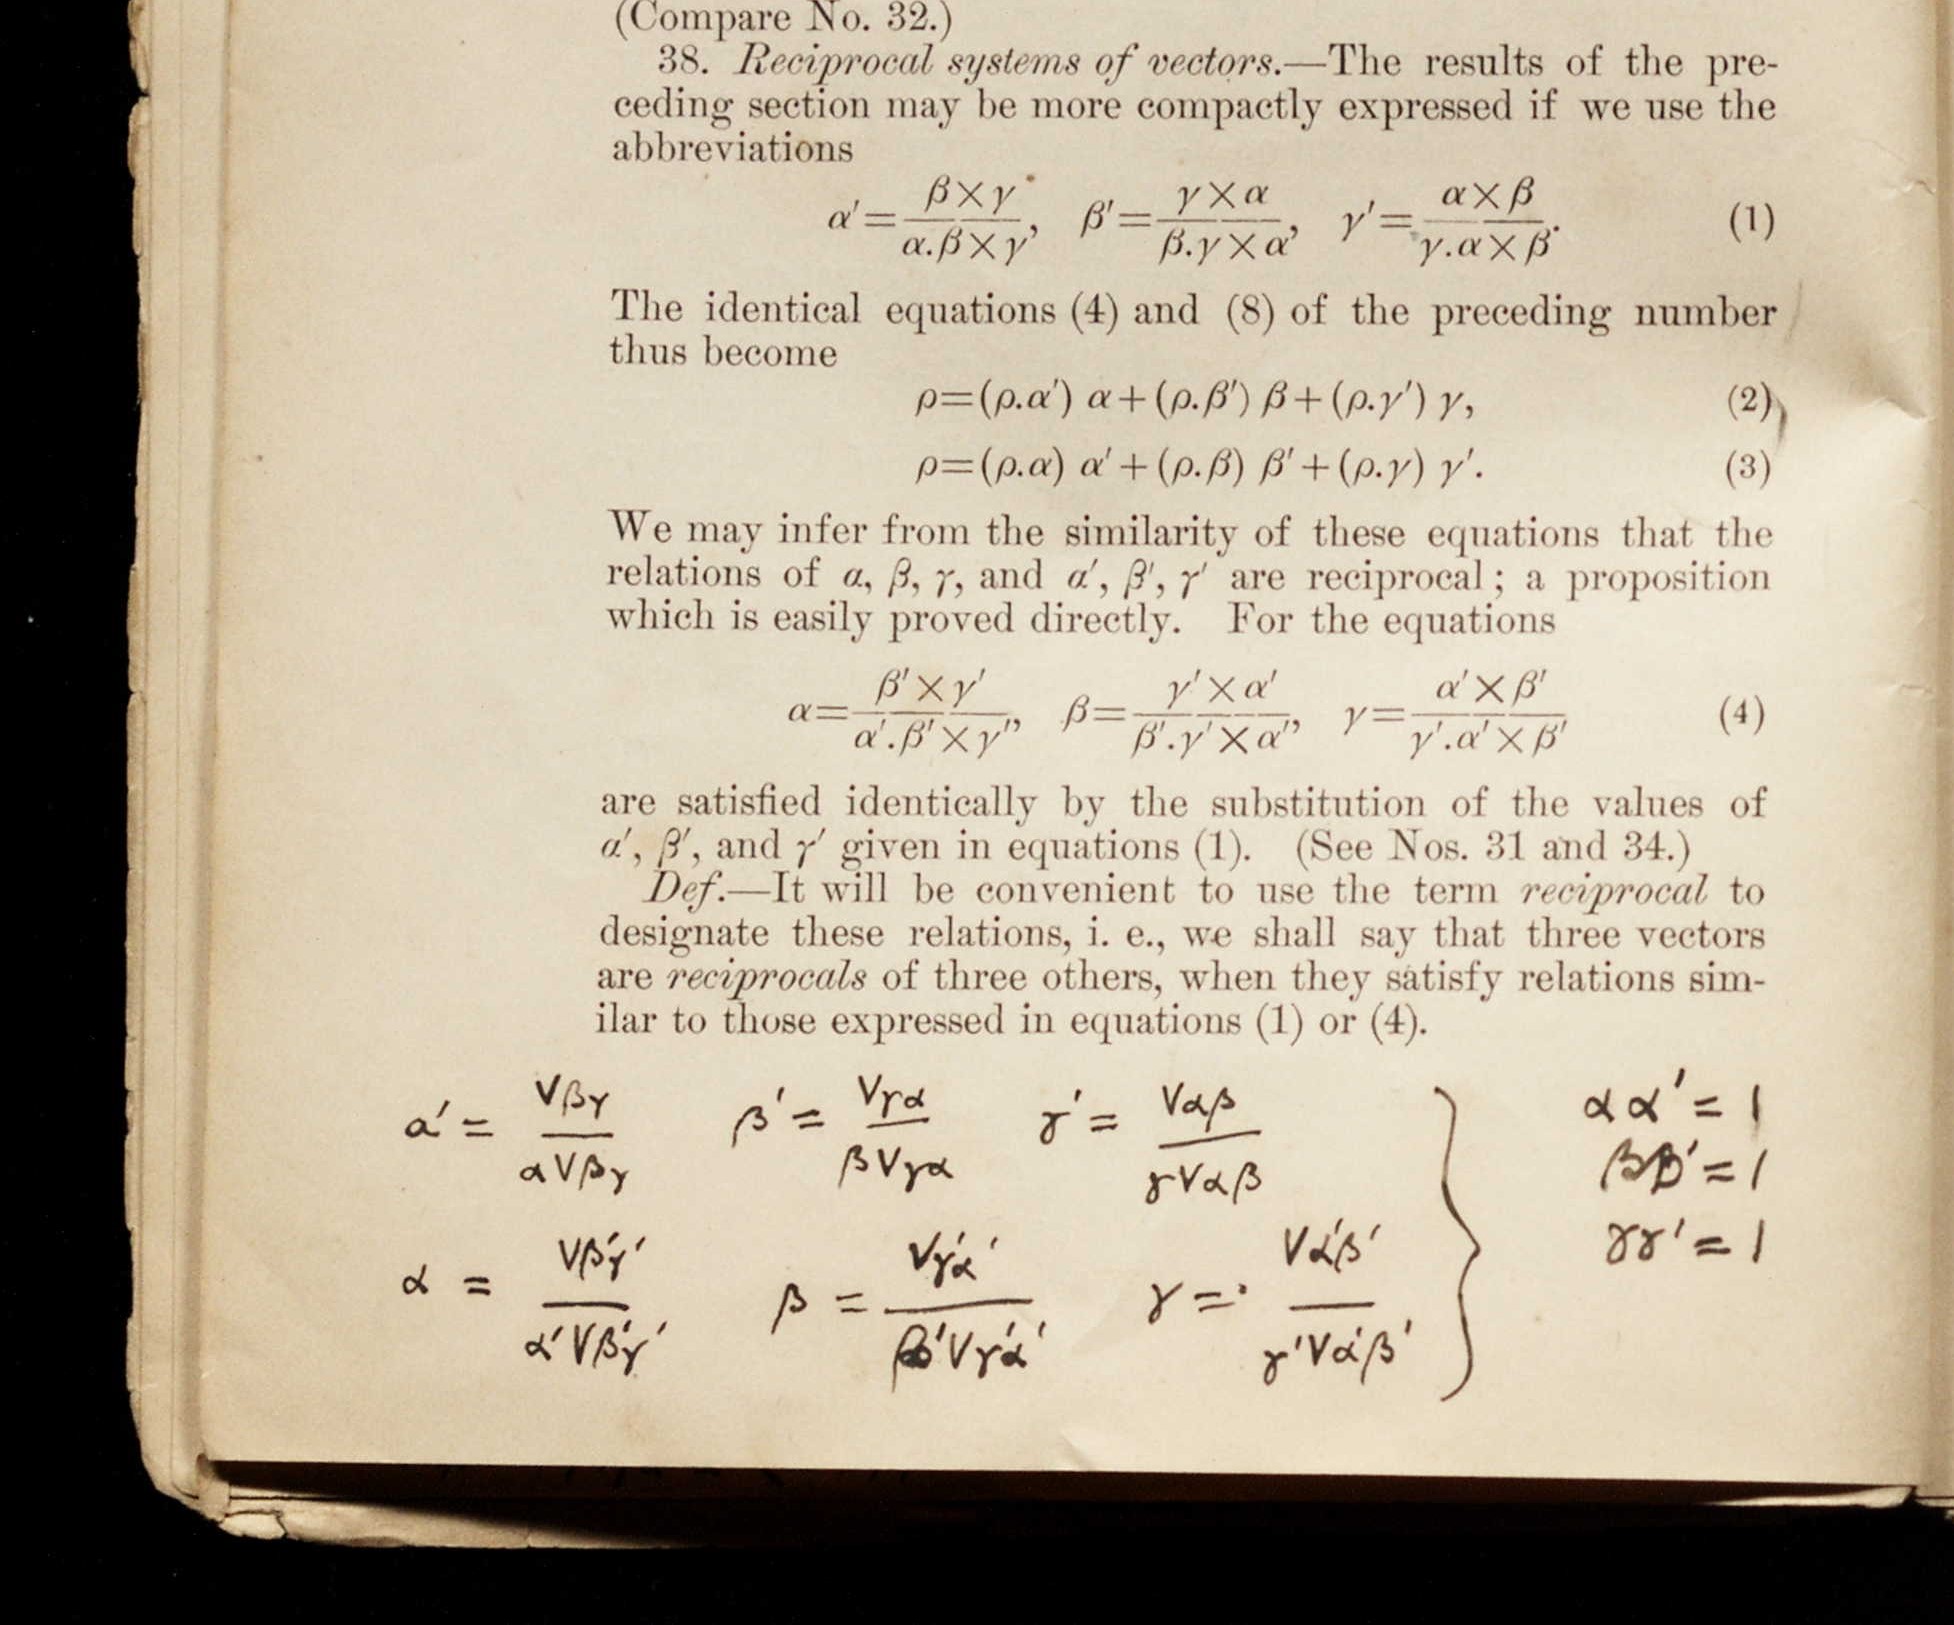 (Compare No. 32.)
38. Reciprocal systems of vectors.—The results of the pre-
ceding section may be more compactly expressed if we use the
abbreviations
α′= β×γ / α.β×γ, β′= γ×α / β.γ×α, γ′= α×β / γ.α×β. (1)
The identical equations (4) and (8) of the preceding number
thus become
ρ=(ρ.α′) α+(ρ.β′) β+(ρ.γ′) γ, (2)
ρ=(ρ.α) α′+(ρ.β) β′+(ρ.γ) γ′. (3)
We may infer from the similarity of these equations that the
relations of α, β, γ, and α′, β′, γ′ are reciprocal; a proposition
which is easily proved directly. For the equations
α= β′×γ′ / α′.β′×γ′, β= γ′×α′ / β′.γ′×α′, γ= α′×β′ / γ′.α′×β′ (4)
are satisfied identically by the substitution of the values of
α′, β′, and γ′ given in equations (1). (See Nos. 31 and 34.)
Def.—It will be convenient to use the term reciprocal to
designate these relations, i. e., we shall say that three vectors
are reciprocals of three others, when they satisfy relations sim-
ilar to those expressed in equations (1) or (4).
α′ = Vβγ / αVβγ β′ = Vγα / βVγα γ′ = Vαβ / γVαβ
α = Vβ′γ′ / α′Vβ′γ′ β = Vγ′α′ / β′Vγ′α′ γ = Vα′β′ / γ′Vα′β′
αα′ = 1
ββ′ = 1
γγ′ = 1